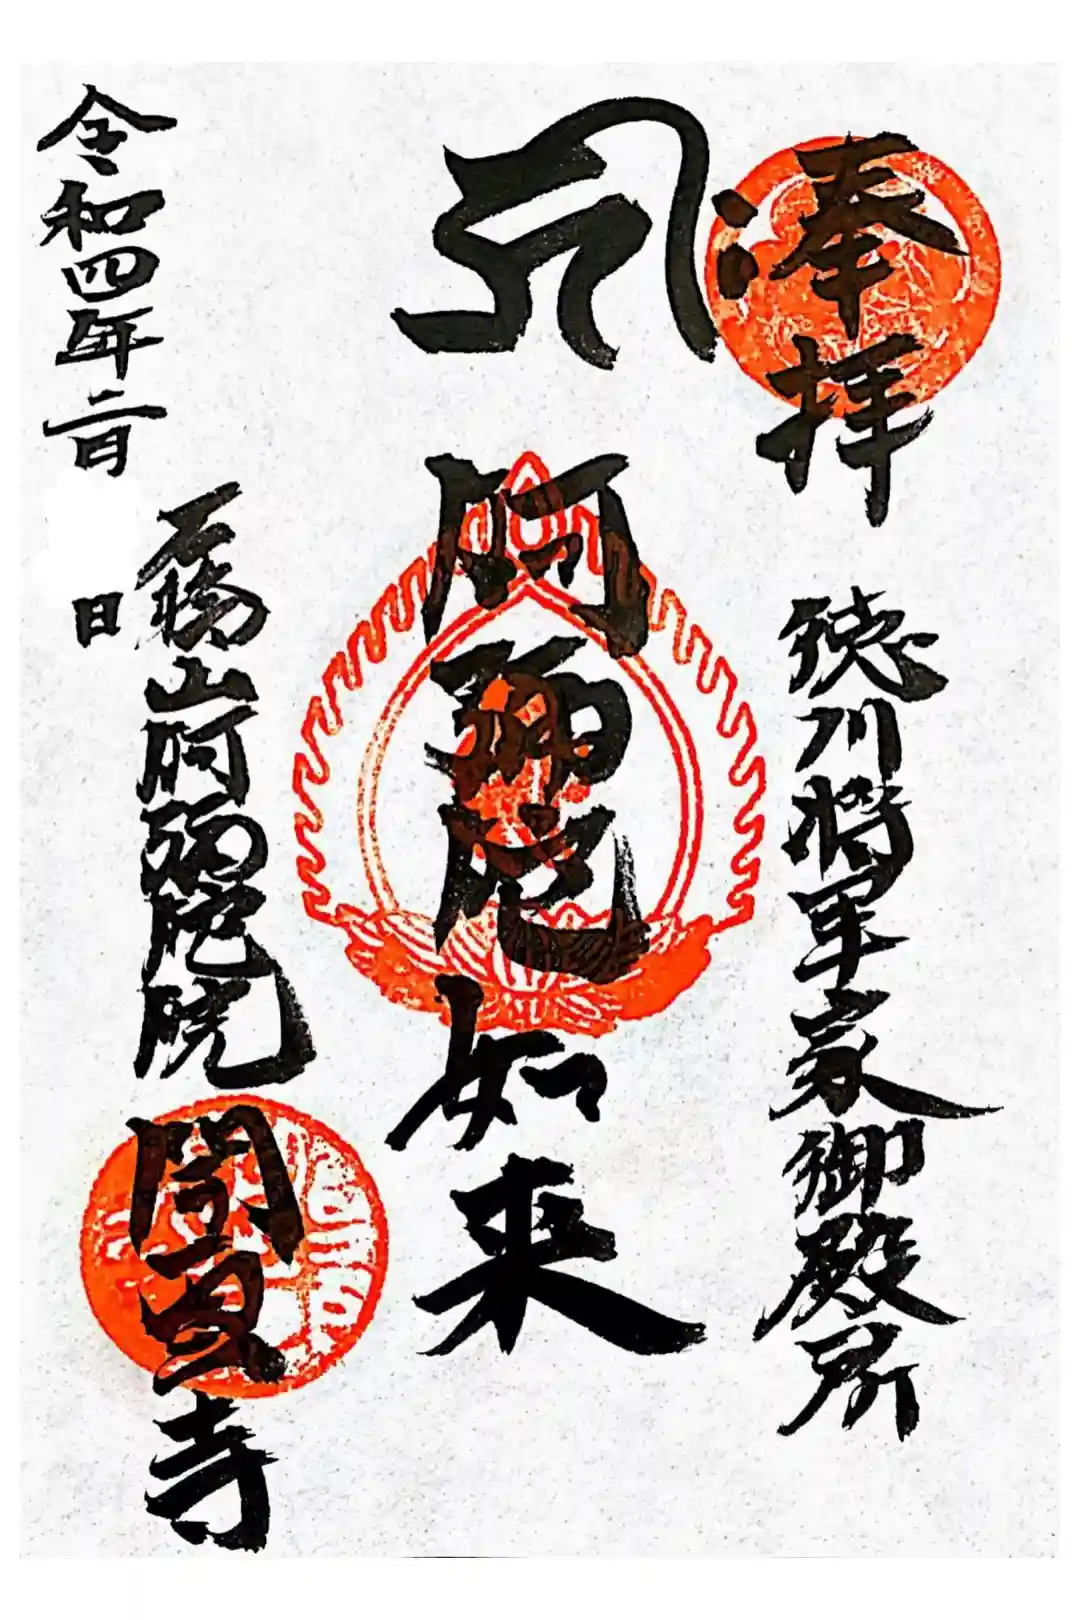 奉拝
徳川将軍家御殿所
ह्रीः
阿弥陀如来
勝山阿弥陀院
寺
令和四年二月 日